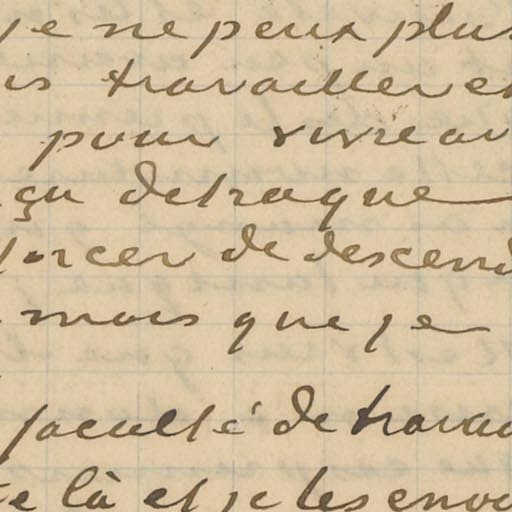 je ne peux plus
is travailler et
pour vivre av
çu detraque
forcer de descend
mois que je
faculté de travai
e là et je les envo